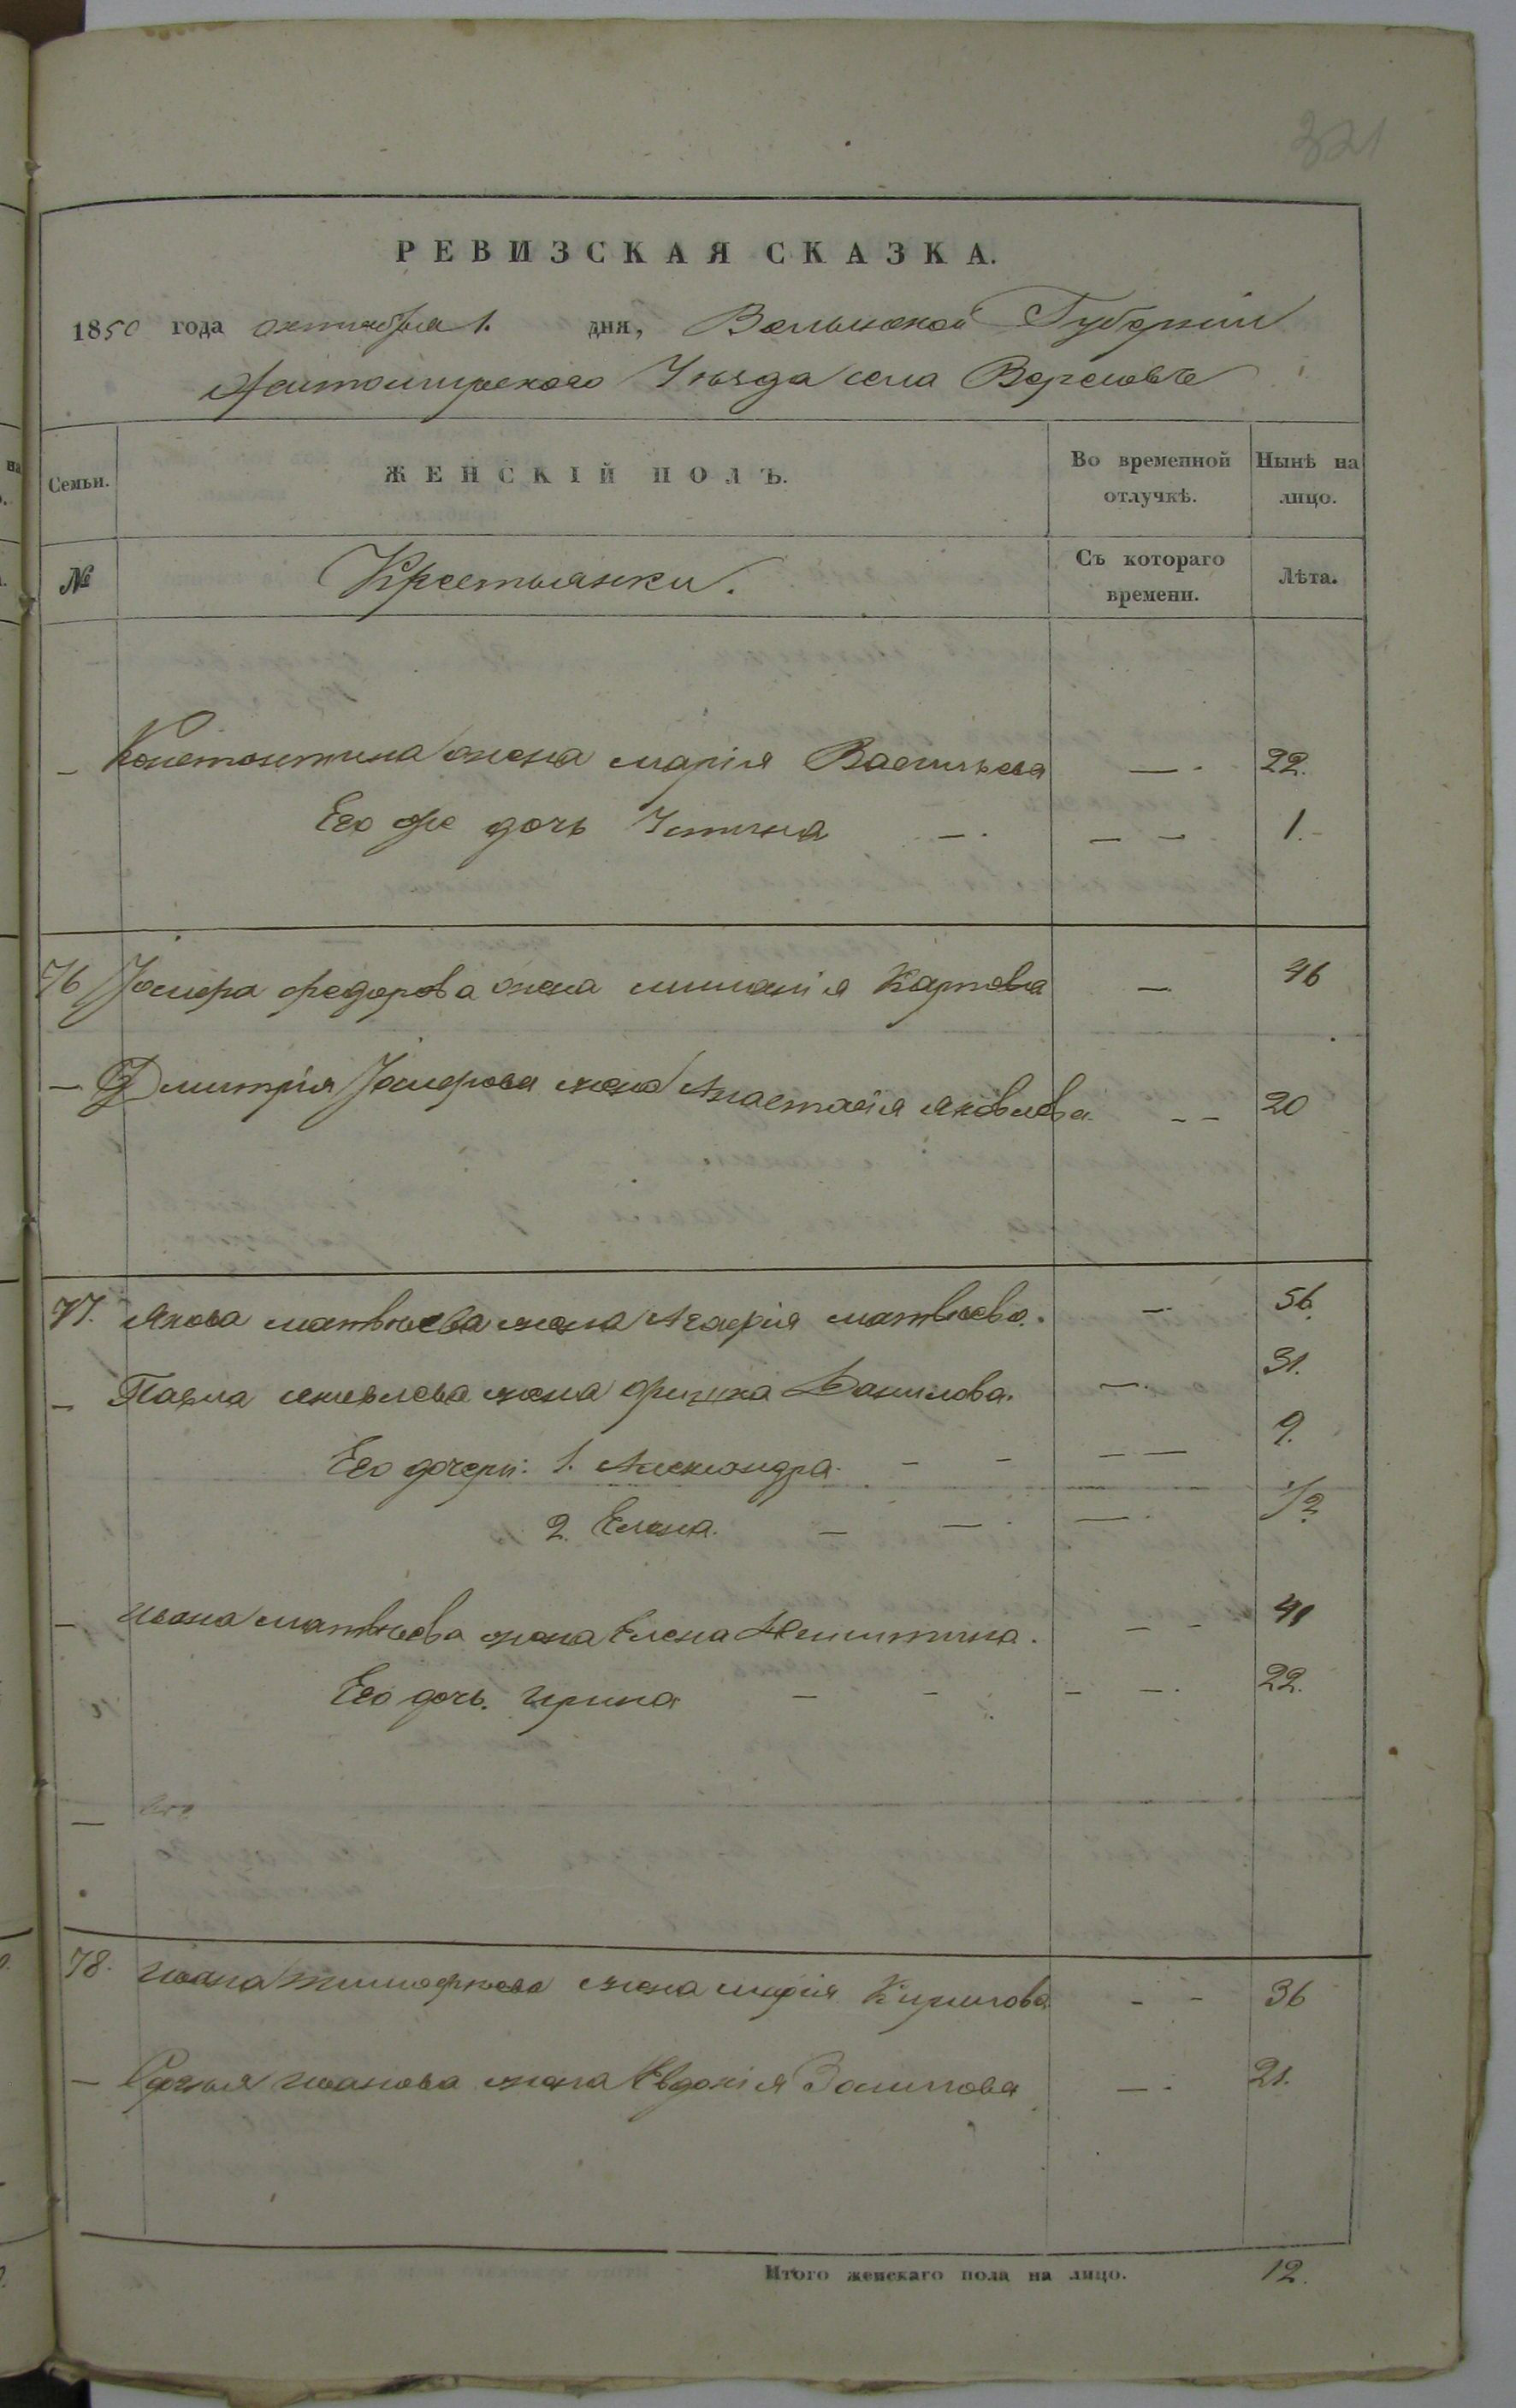 321
РЕВИЗСКАЯ СКАЗКА.
1850 года октября 1. дня, Волынской Губернии
Житомирского Уѣзда села
Семьи. ЖЕНСКІЙ ПОЛЪ. Во временной отлучкѣ. Нынѣ на лицо.
№ Крестьянки. Съ котораго времени. Лѣта.
— Константина жена марія Васильева — 22.
Его же дочь Устина — — — 1.
76 Іосифа федорова жена Карпова — 46
— Дмитрія Іосифова жена Анастасія яковлева — — 20
77. Якова матвѣева жена Агафія матвѣева. — 56.
— Павла яковлева жена Данилова. — 31.
Его дочери: 1. Александра — — — — 9.
2. Елена. — — — 1/2
— ивана матвѣева жена Елена Никитина. — — 41
Его дочь. ирина — — — — 22.
—
78. ивана тимофѣева жена марія Кирилова — — 36
— иванова жена Евдокія — 21.
Итого женскаго пола на лицо. 12.